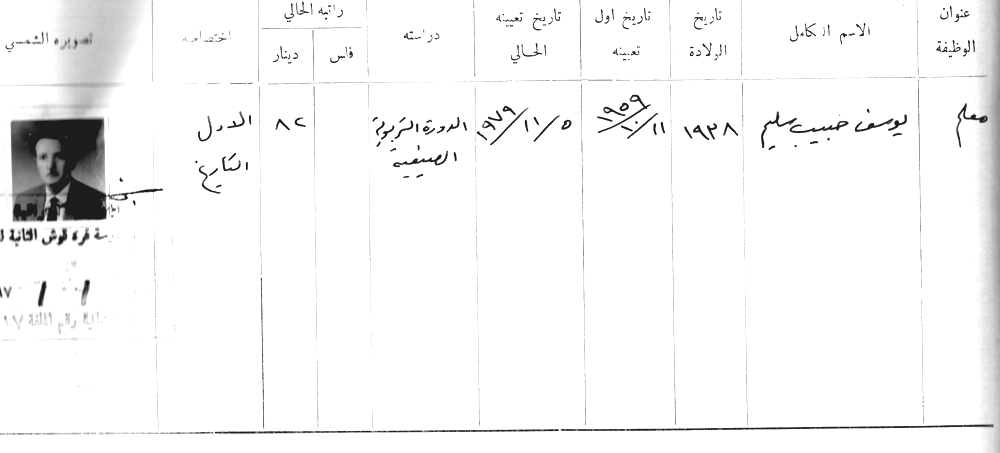 عنوان الوظيفة
الاسم الكامل
تاريخ الولادة
تاريخ اول تعيينه
تاريخ تعيينه الحالي
دراسته
راتبه الحالي
فلس
دينار
اختصاصه
تصويره الشمسي
معلم
يوسف حبيب سليم
١٩٣٨
١١/١٠/١٩٥٩
٥/١١/١٩٧٩
الدورة التربوية
الصيفية
٨٢
التاريخ
قره قوش الثانية
رقم الملفة ١٧